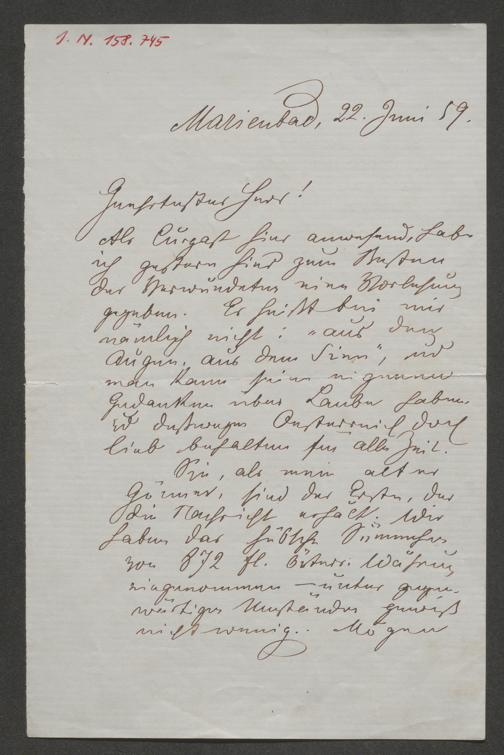 J. N. 158.745
Marienbad, 22. Juni 59.
Geehrtester Herr!
Als Curgast hier anwesend, habe
ich gestern hier zum Besten
der Verwundeten eine Vorlesung
gegeben. Es heißt bei mir
nämlich nicht: „aus den
Augen, aus dem Sinn", und
man kann seine eigenen
Gedanken über Laube haben
und deßwegen Oesterreich doch
lieb behalten für alle Zeit.
Sie, als mein alter
Gönner, sind der Erste, der
die Nachricht erhält. Wir
haben das hübsche Sümmchen
von 872 fl. österr. Währung
eingenommen – unter gegen-
wärtigen Umständen gewiß
nicht wenig. Mögen